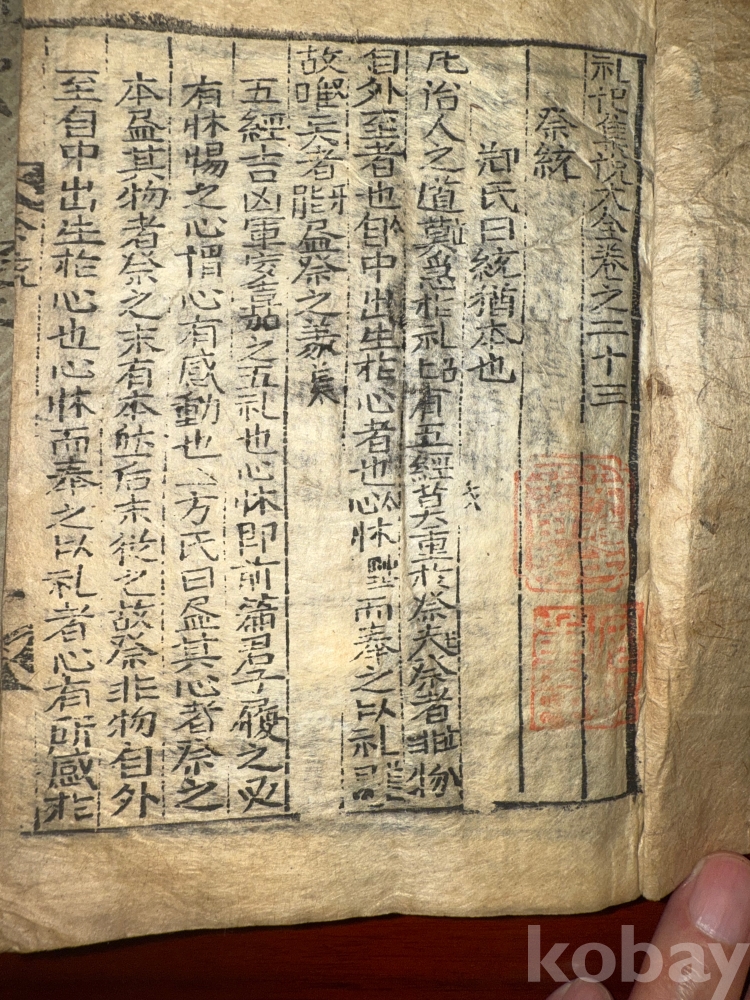 礼記集說大全卷之二十三
祭統
鄭氏曰統猶本也
凢治人之道莫急於礼礼有五經莫重於祭夫祭者非物
自外至者也自中出生於心者也心怵而奉之以礼是
故唯贒者能盡祭之義
五經吉凶軍賔嘉之五礼也心怵即前篇君子履之必
有怵惕之心謂心有感動也方氏曰盡其心者祭之
本盡其物者祭之末有本然后末從之故祭非物自外
至自中出生於心也心怵而奉之以礼者心有所感於
kobay